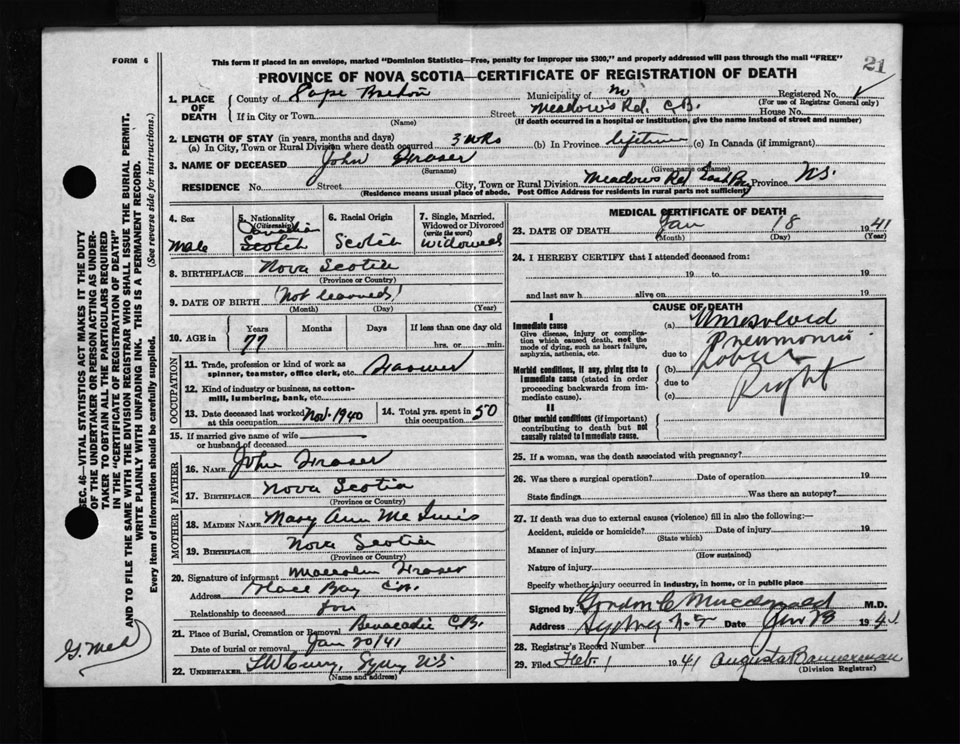 FORM 6
This form if placed in an envelope, marked "Dominion Statistics—Free, penalty for improper use $300," and properly addressed will pass through the mail "FREE"
21
PROVINCE OF NOVA SCOTIA—CERTIFICATE OF REGISTRATION OF DEATH
1. PLACE OF DEATH
County of Cape Breton Municipality of Registered No.
(For use of Registrar General only)
If in City or Town Street Meadows Rd. C.B. House No.
(Name) (If death occurred in a hospital or institution, give the name instead of street and number)
2. LENGTH OF STAY (in years, months and days)
(a) In City, Town or Rural Division where death occurred 3 wks (b) In Province lifetime (c) In Canada (if immigrant)
3. NAME OF DECEASED John Fraser
(Surname) (Given name or names)
RESIDENCE No. Street City, Town or Rural Division Meadows Rd East Bay Province N.S.
(Residence means usual place of abode. Post Office Address for residents in rural parts not sufficient)
4. Sex Male
5. Nationality (Citizenship) Canadian Scotch
6. Racial Origin Scotch
7. Single, Married, Widowed or Divorced (write the word) Widowed
8. BIRTHPLACE Nova Scotia
(Province or Country)
9. DATE OF BIRTH (Not learned)
(Month) (Day) (Year)
10. AGE in Years 77 Months Days If less than one day old hrs. or min.
OCCUPATION
11. Trade, profession or kind of work as spinner, teamster, office clerk, etc. Farmer
12. Kind of industry or business, as cotton-mill, lumbering, bank, etc.
13. Date deceased last worked at this occupation Nov. 1940
14. Total yrs. spent in this occupation 50
15. If married give name of wife or husband of deceased
FATHER
16. NAME John Fraser
17. BIRTHPLACE Nova Scotia
(Province or Country)
MOTHER
18. MAIDEN NAME Mary Ann McInnis
19. BIRTHPLACE Nova Scotia
(Province or Country)
20. Signature of informant Malcolm Fraser
Address Glace Bay C.B.
Relationship to deceased Son
21. Place of Burial, Cremation or Removal Benacadie C.B.
Date of burial or removal Jan 20/41
22. UNDERTAKER Sydney N.S.
(Name and address)
MEDICAL CERTIFICATE OF DEATH
23. DATE OF DEATH Jan 18 1941
(Month) (Day) (Year)
24. I HEREBY CERTIFY that I attended deceased from:
19 to 19
and last saw h alive on 19
CAUSE OF DEATH
I
Immediate cause
Give disease, injury or complication which caused death, not the mode of dying, such as heart failure, asphyxia, asthenia, etc.
(a) Unresolved Pneumonia
due to
Morbid conditions, if any, giving rise to immediate cause (stated in order proceeding backwards from immediate cause).
(b) Lobar
due to
(c) Right
II
Other morbid conditions (if important) contributing to death but not causally related to immediate cause.
25. If a woman, was the death associated with pregnancy?
26. Was there a surgical operation? Date of operation 19
State findings Was there an autopsy?
27. If death was due to external causes (violence) fill in also the following:—
Accident, suicide or homicide? Date of injury 19
(State which)
Manner of injury
(How sustained)
Nature of injury
Specify whether injury occurred in industry, in home, or in public place
Signed by Gordon C Macdonald M.D.
Address Sydney N.S. Date Jan 28 194
28. Registrar's Record Number
29. Filed Feb. 1 1941 Augusta Bannerman
(Division Registrar)
SEC. 46—VITAL STATISTICS ACT MAKES IT THE DUTY
OF THE UNDERTAKER OR PERSON ACTING AS UNDER-
TAKER TO OBTAIN ALL THE PARTICULARS REQUIRED
IN THE "CERTIFICATE OF REGISTRATION OF DEATH"
AND TO FILE THE SAME WITH THE DIVISION REGISTRAR WHO SHALL ISSUE THE BURIAL PERMIT.
WRITE PLAINLY WITH UNFADING INK. THIS IS A PERMANENT RECORD.
Every item of information should be carefully supplied. (See reverse side for instructions.)